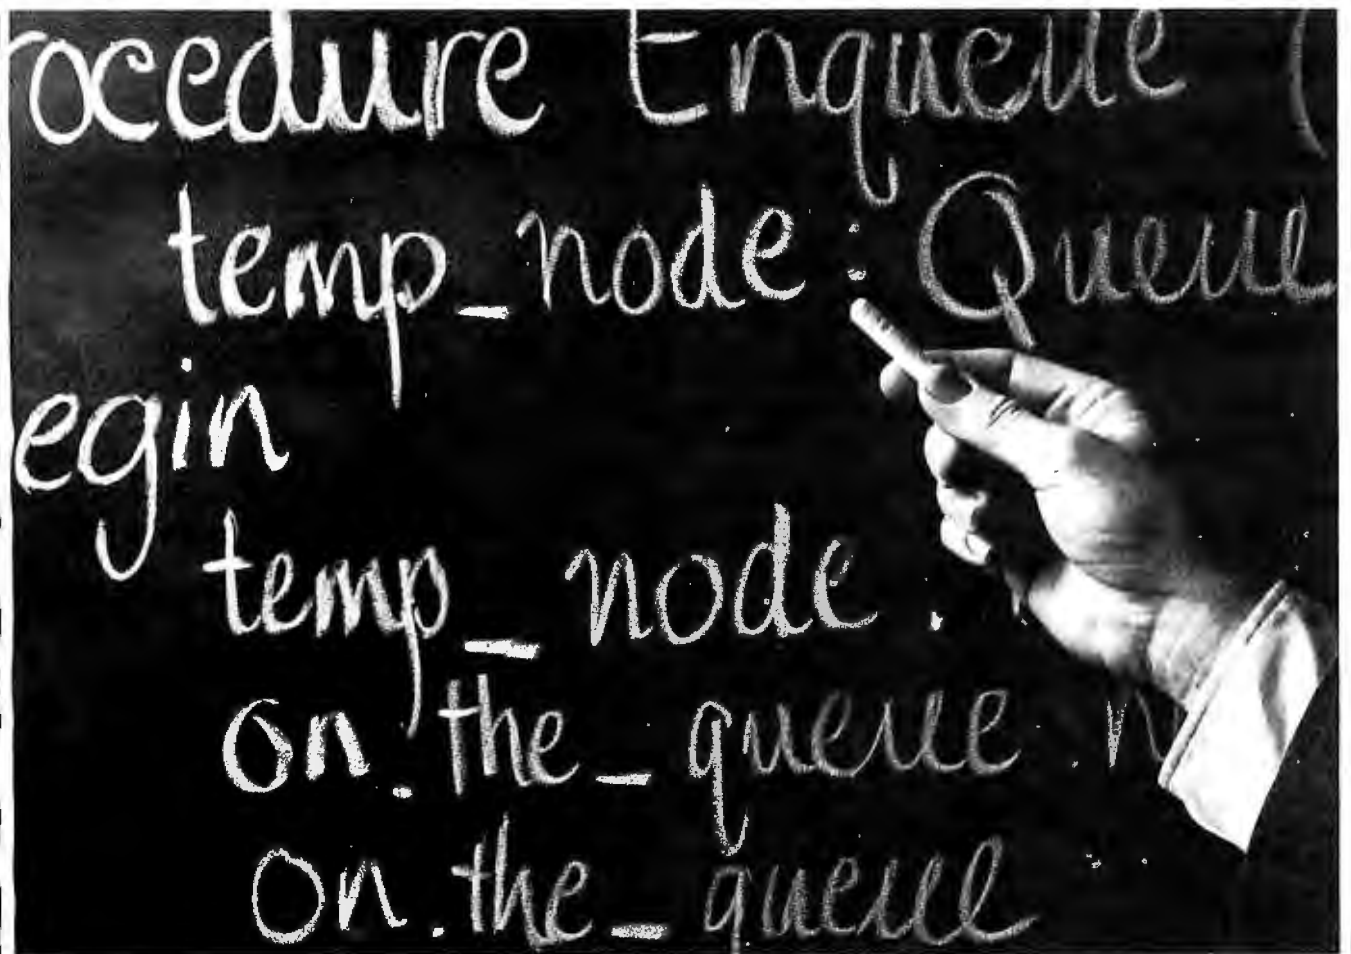 rocedure Enqueue (
temp_node : Queue
egin
temp_node .
on.the_queue .n
on.the_queue